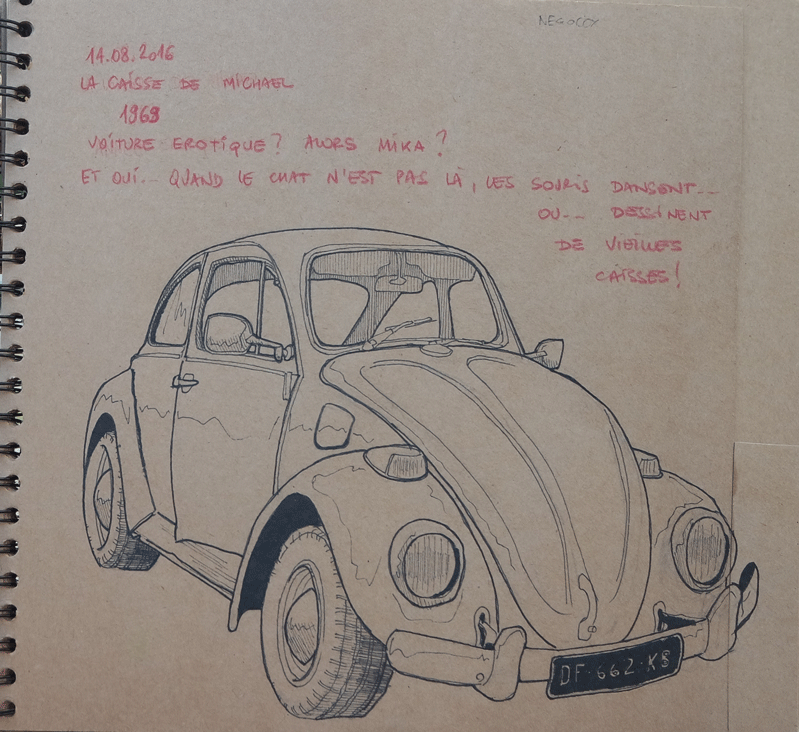 NEGOCOX
14.08.2016
LA CAISSE DE MICHAEL
1969
VOITURE EROTIQUE? ALORS MIKA?
ET OUI... QUAND LE CHAT N'EST PAS LÀ, LES SOURIS DANSENT...
OU... DESSINENT
DE VIEILLES
CAISSES!
DF-662-KS